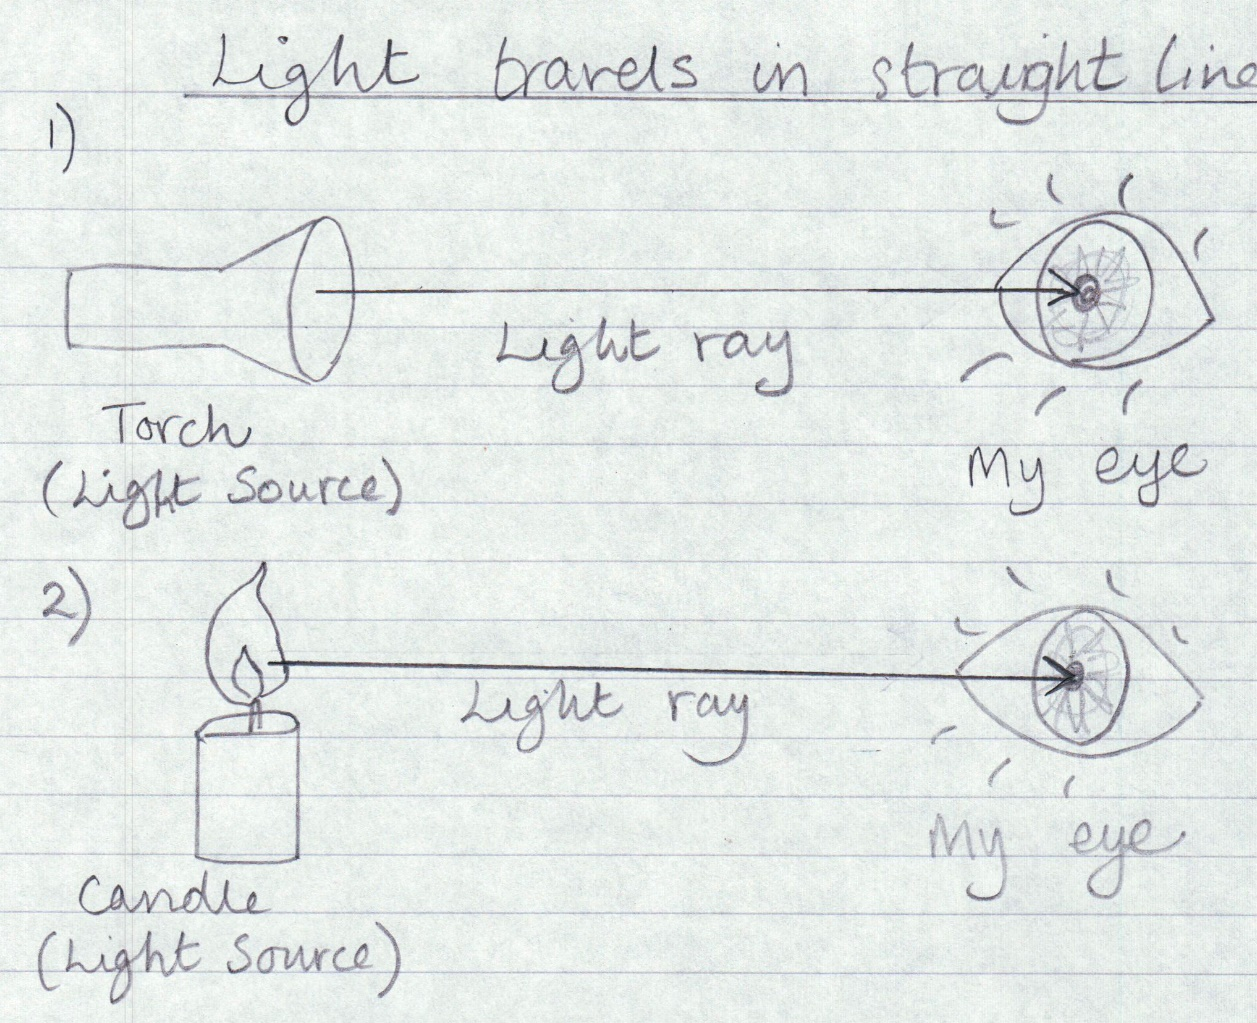 Light travels in straight line
1)
Light ray
Torch
(Light Source)
My eye
2)
Light ray
My eye
Candle
(Light Source)